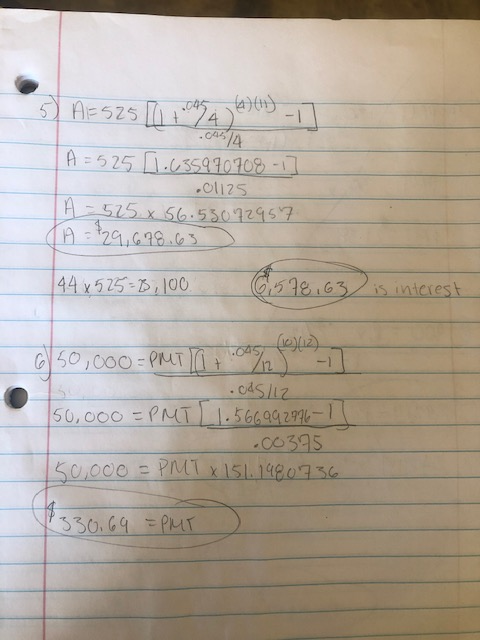 5) A=525 [(1 + .045/4)^(4)(11) - 1]
.045/4
A = 525 [1.635970708 - 1]
.01125
A = 525 x 56.53072957
A = $29,678.63
44 x 525 = 23,100 $6,578.63 is interest
6) 50,000 = PMT [(1 + .045/12)^(10)(12) - 1]
.045/12
50,000 = PMT [1.566992776 - 1]
.00375
50,000 = PMT x 151.1980736
$330.69 = PMT